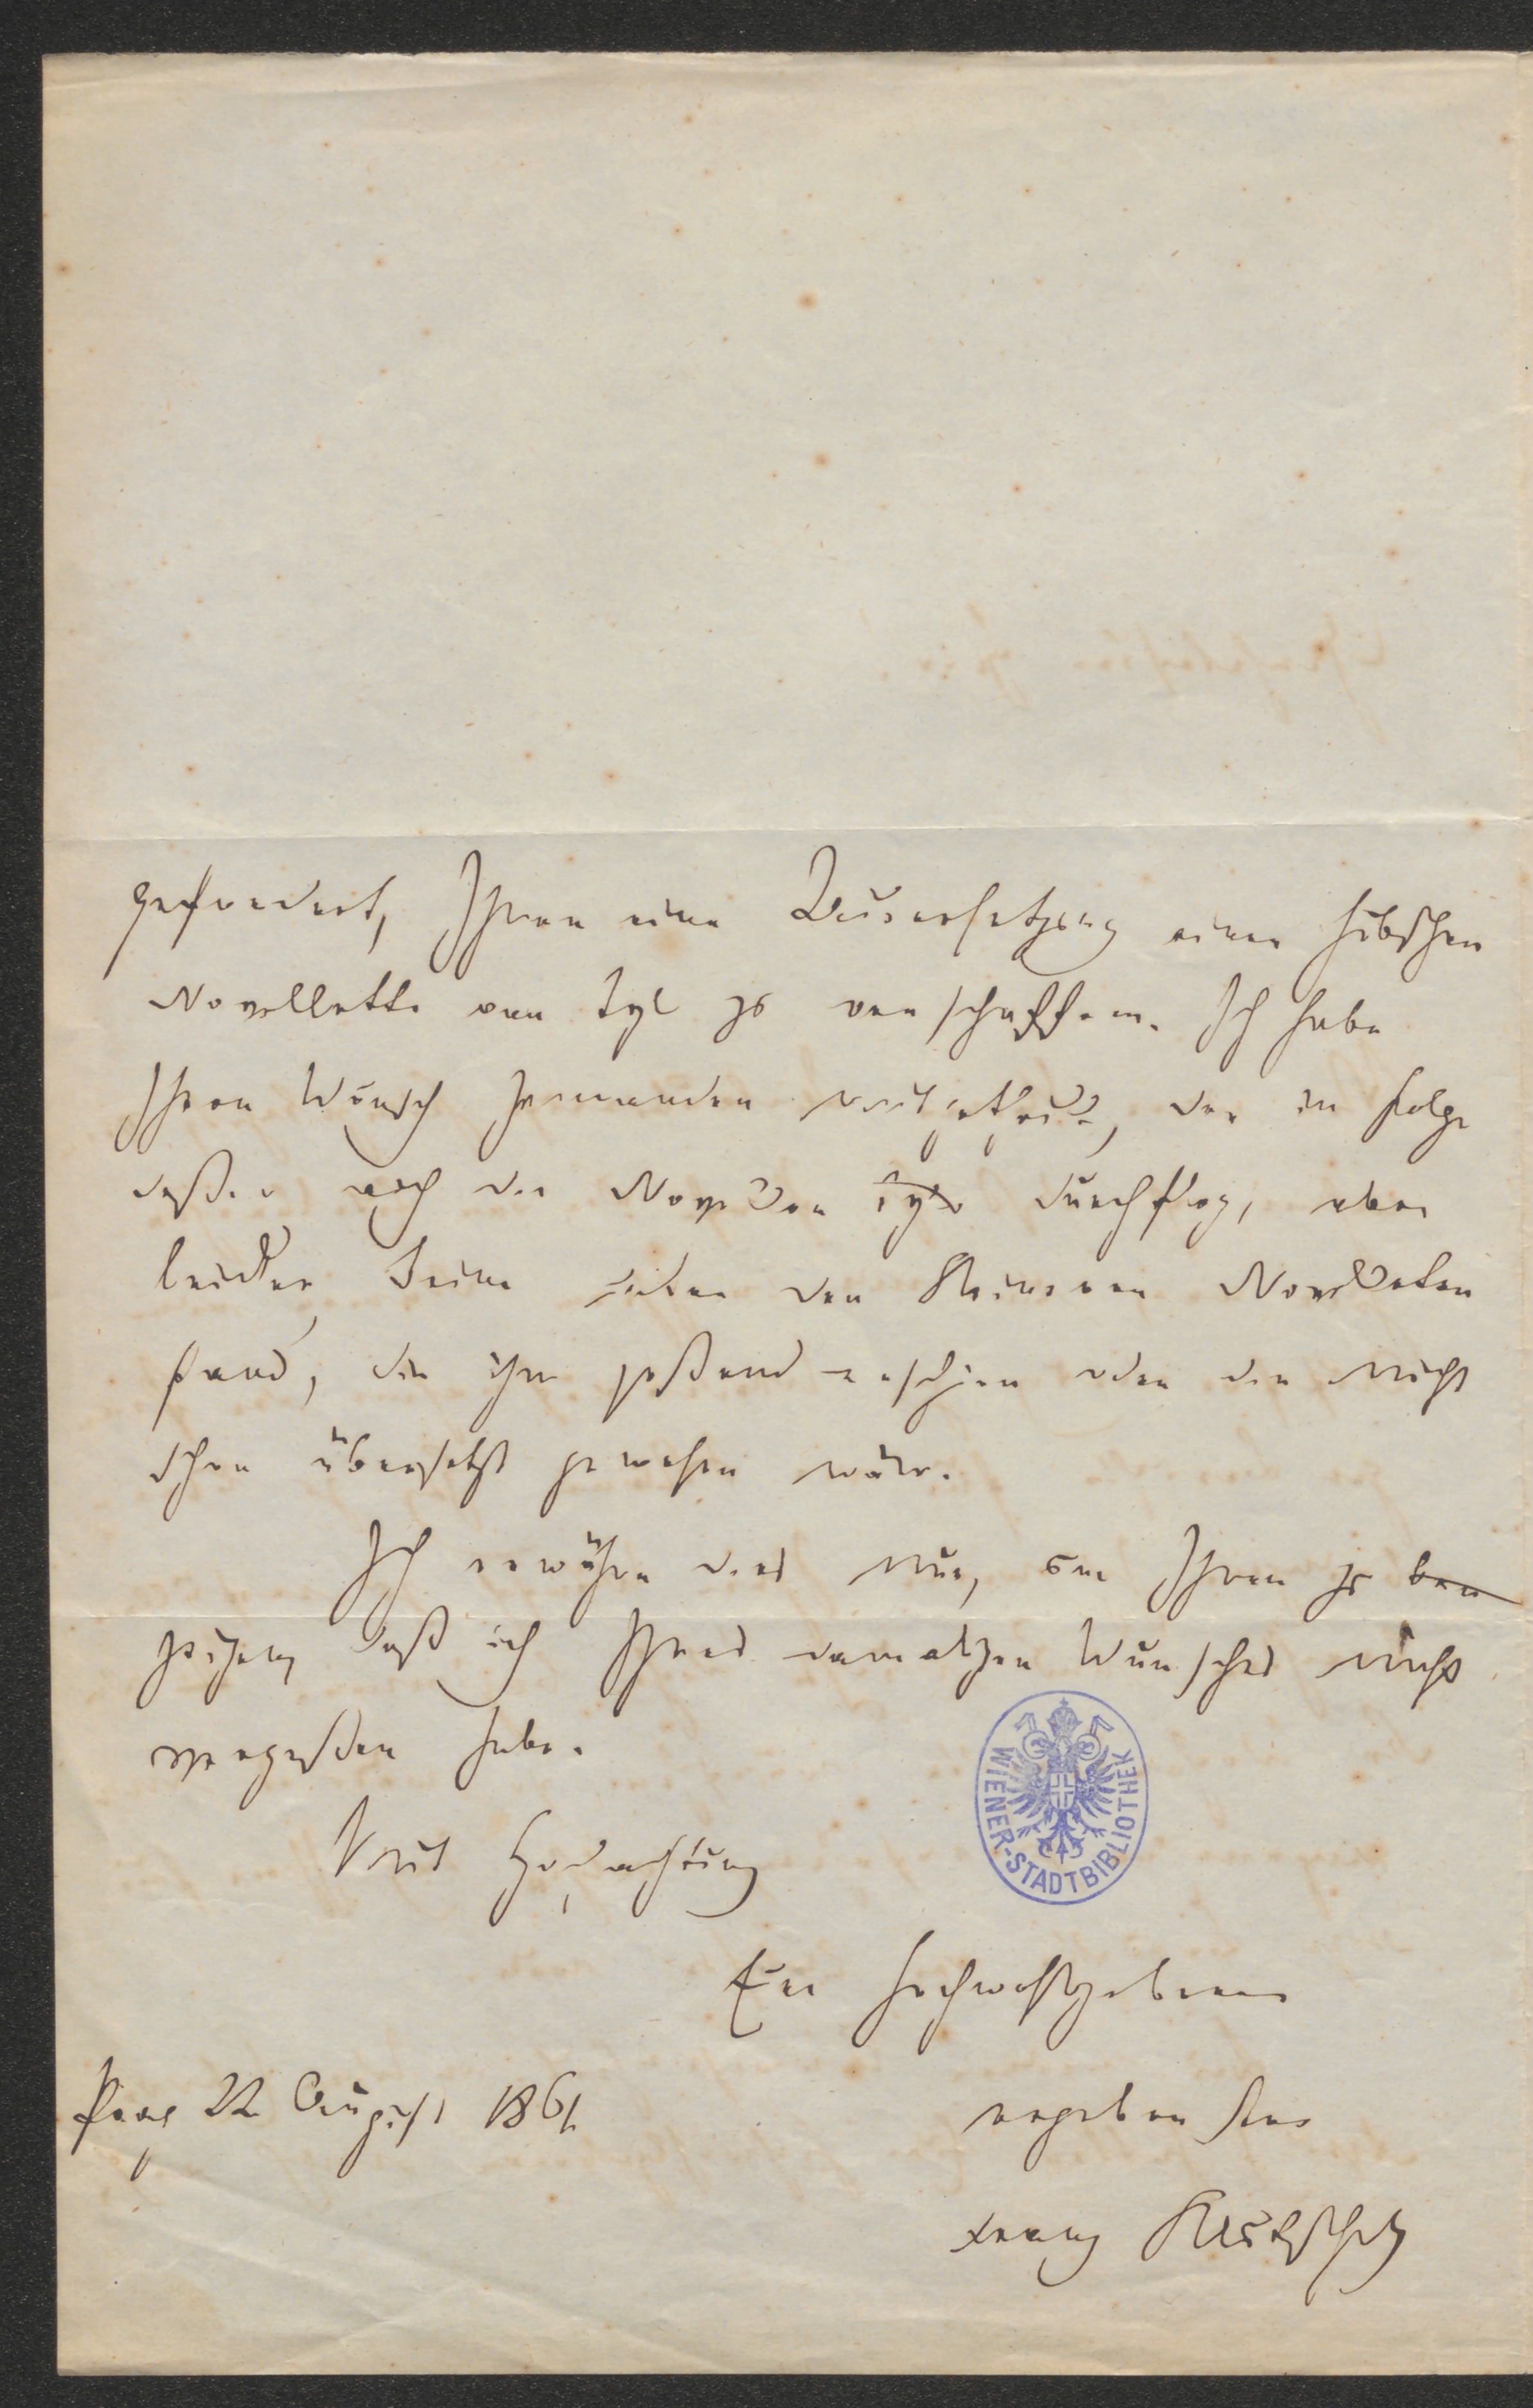 gefordert, Ihnen eine Uebersetzung einer hübschen
Novellette von Tyl zu verschaffen. Ich habe
Ihren Wunsch Jemanden mitgetheilt, der in Folge
deßen auch die Novellen Tyls durchflog, aber
leider keine unter den kleineren Novelleten
fand, die ihm paßend erschien oder die nicht
schon übersetzt gewesen wäre.
Ich erwähne dies nur, um Ihnen zu
zeigen, daß ich Ihres damaligen Wunsches nicht
vergeßen habe.
Mit Hochachtung
Euer Hochwohlgeboren
Prag 22 August 1861
ergebenster
Franz
WIENER-STADTBIBLIOTHEK